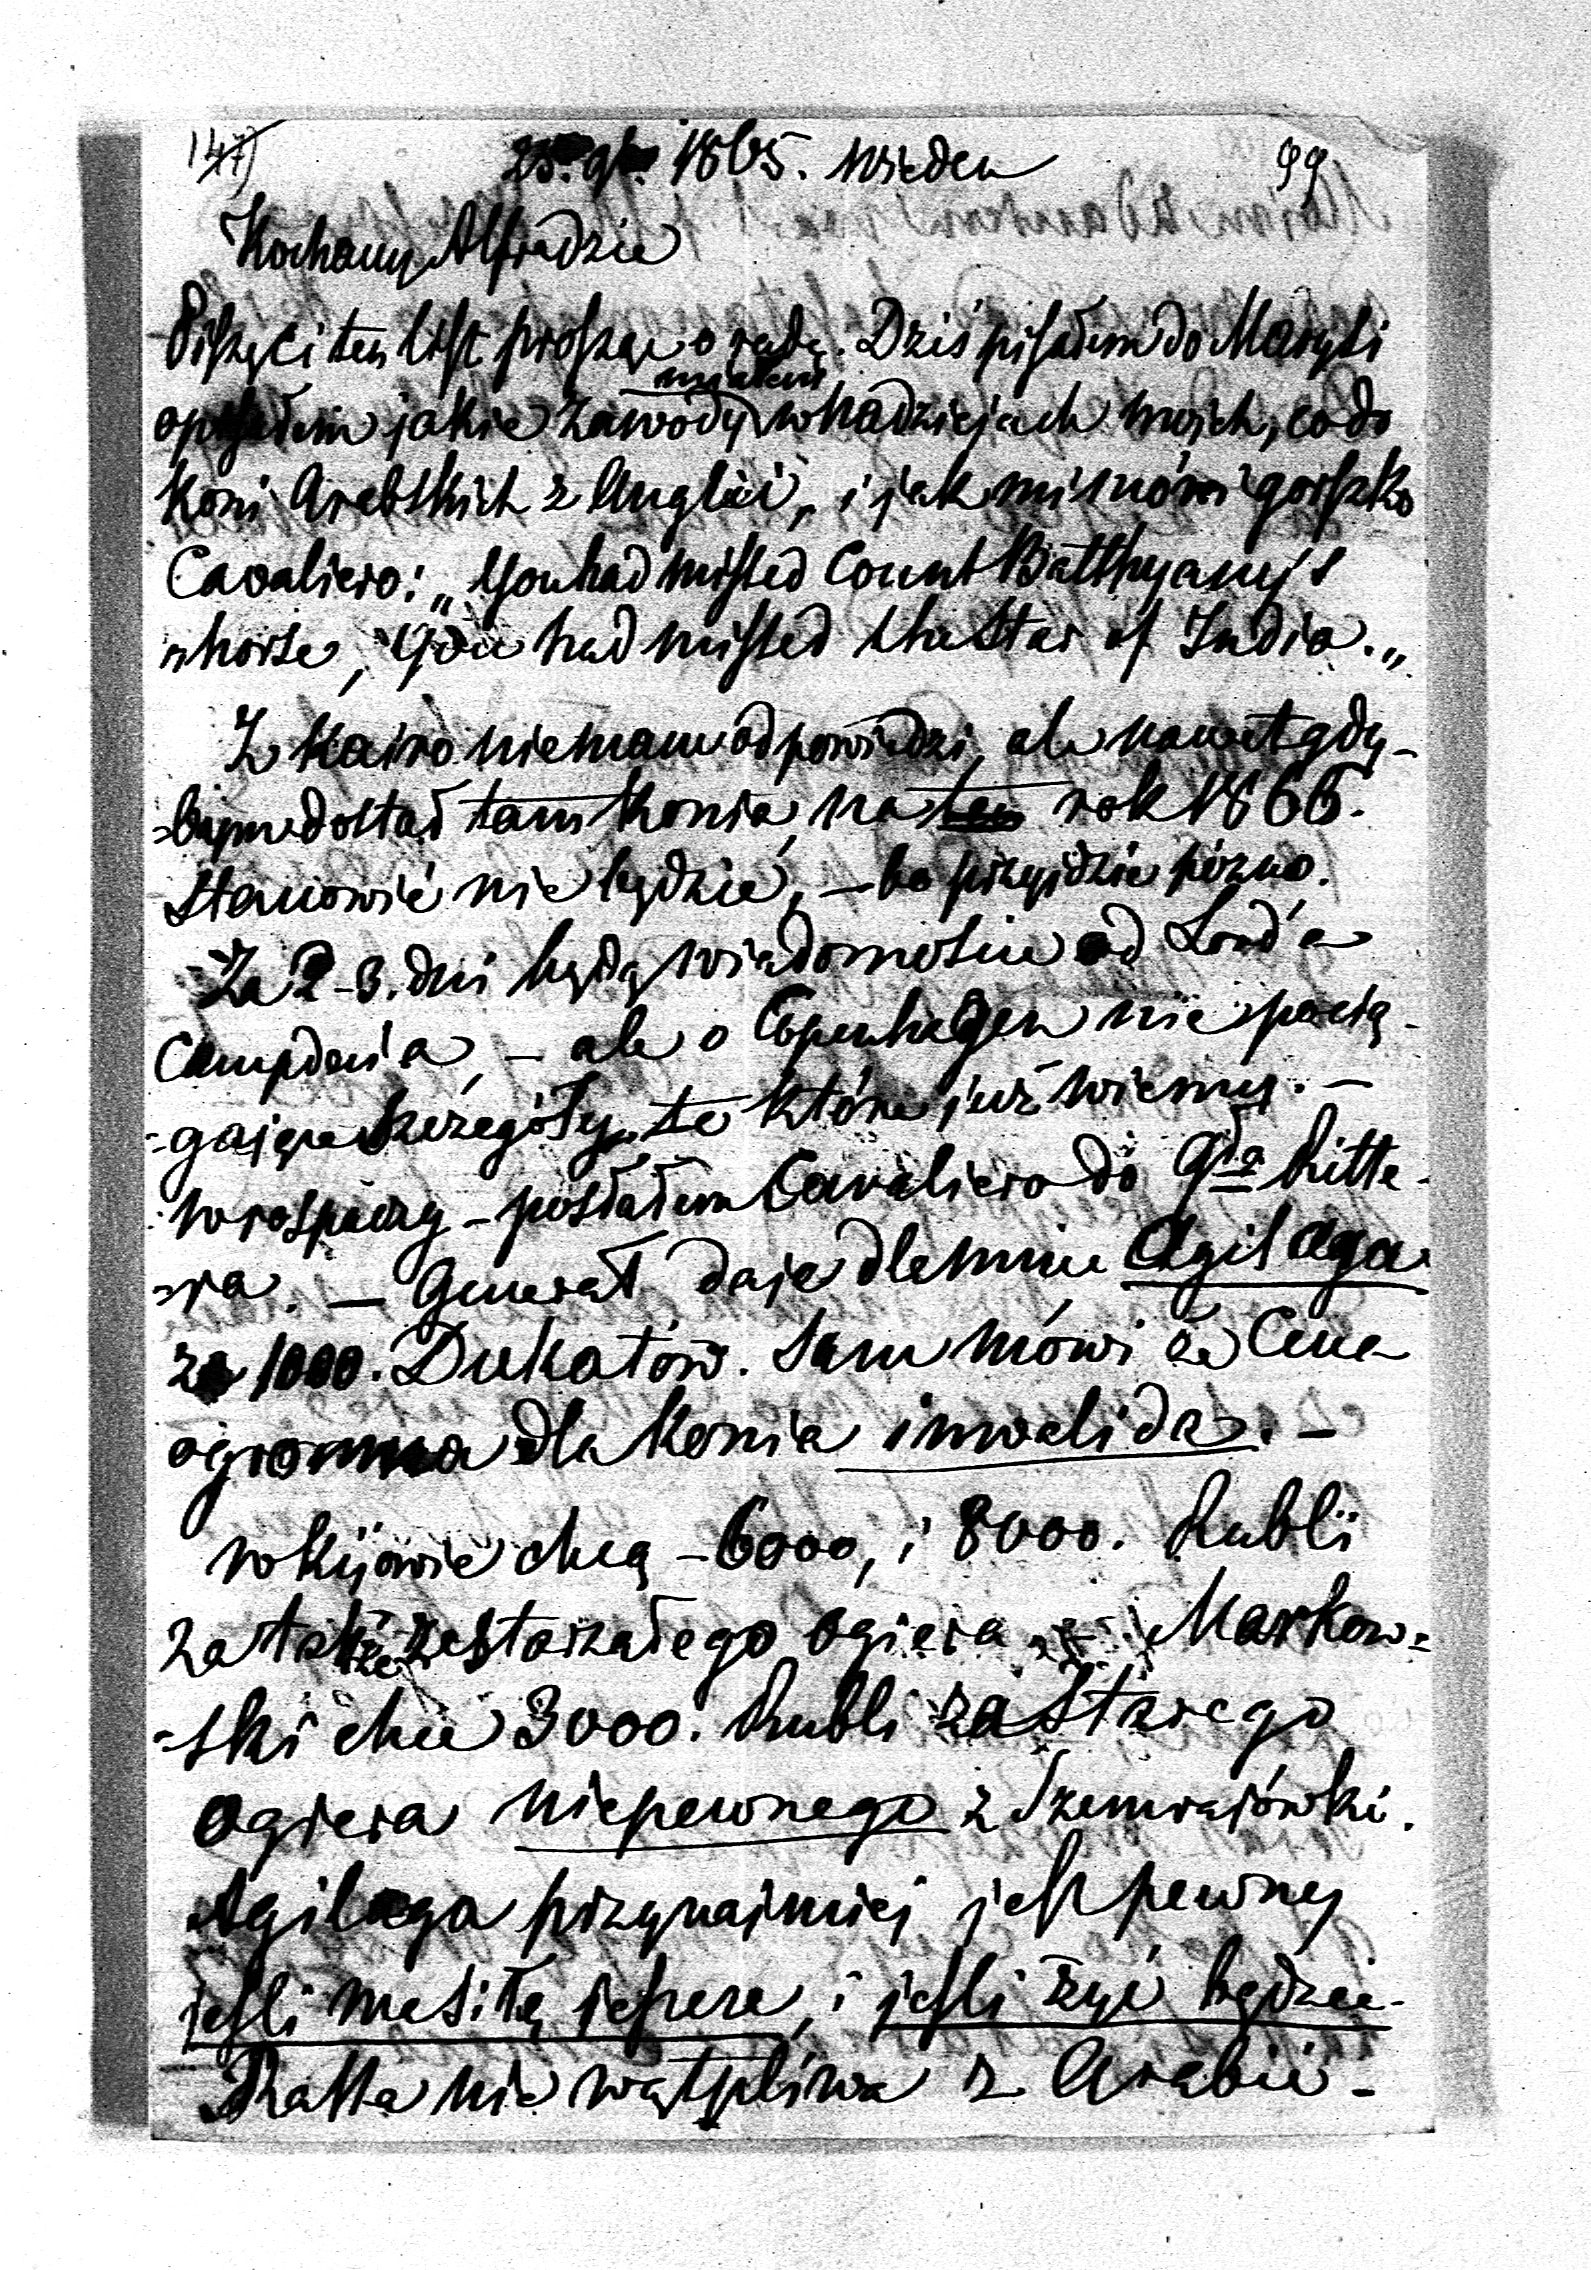 147)
99
25. 9br. 1865. Wieden
Kochany Alfredzie
Piszę ci ten list prosząc o radę. Dziś pisałem do Marysi
opisałem jakie zawody miałem w nadziejach moich, co do
Koni Arabskich z Anglii, i jak mi mówi gorszko
Cavaliero: „You had missed Count Batthyany's
„horse, You had missed the Star of India.„
Z Kairo nie mam odpowiedzi, ale nawet gdy-
-bym dostał tam Konia, na ten rok 1866.
Stanowić nie będzie, – bo przyjdzie pózno.
Za 2-3. dni będą wiadomoście od Lord'a
Campden'a, – ale o Copenhagen nie pocią-
-gające szczegóły, te które już wiemy. –
W rospaczy – posłałem Cavaliero do Gła Ritte-
-ra. – Generał daje dla mnie Agil Aga
za 1000. Dukatów. Sam mówi że Cena
ogromna dla Konia inwalida. –
w Kijowie chcą – 6000, i 8000. Rubli
za także zestarzałego ogiera – Markow-
-ski chce 3000. Rubli za Starego
ogiera niepewnego z Szemrajówki.
Agil aga przynajmniej jest pewny
jesli ma siłę jeszcze, i jesli żyć będzie.
Rassa nie wątpliwa z Arabii –